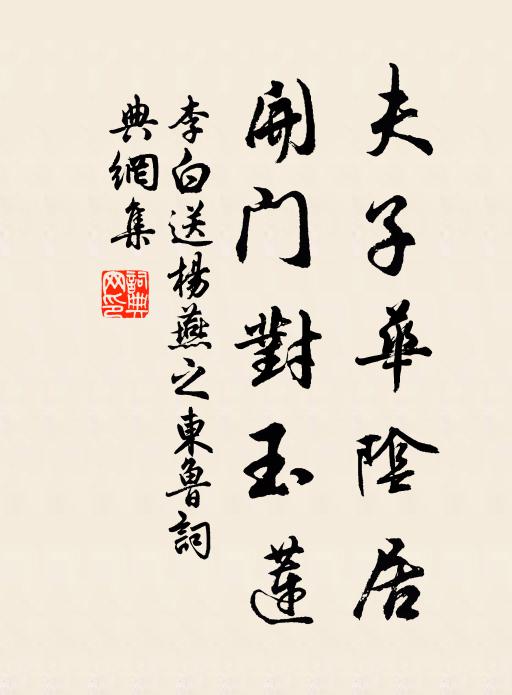 夫子華陰居
開門對玉蓮
李白送楊燕之東魯詞
典網集
詞典網印